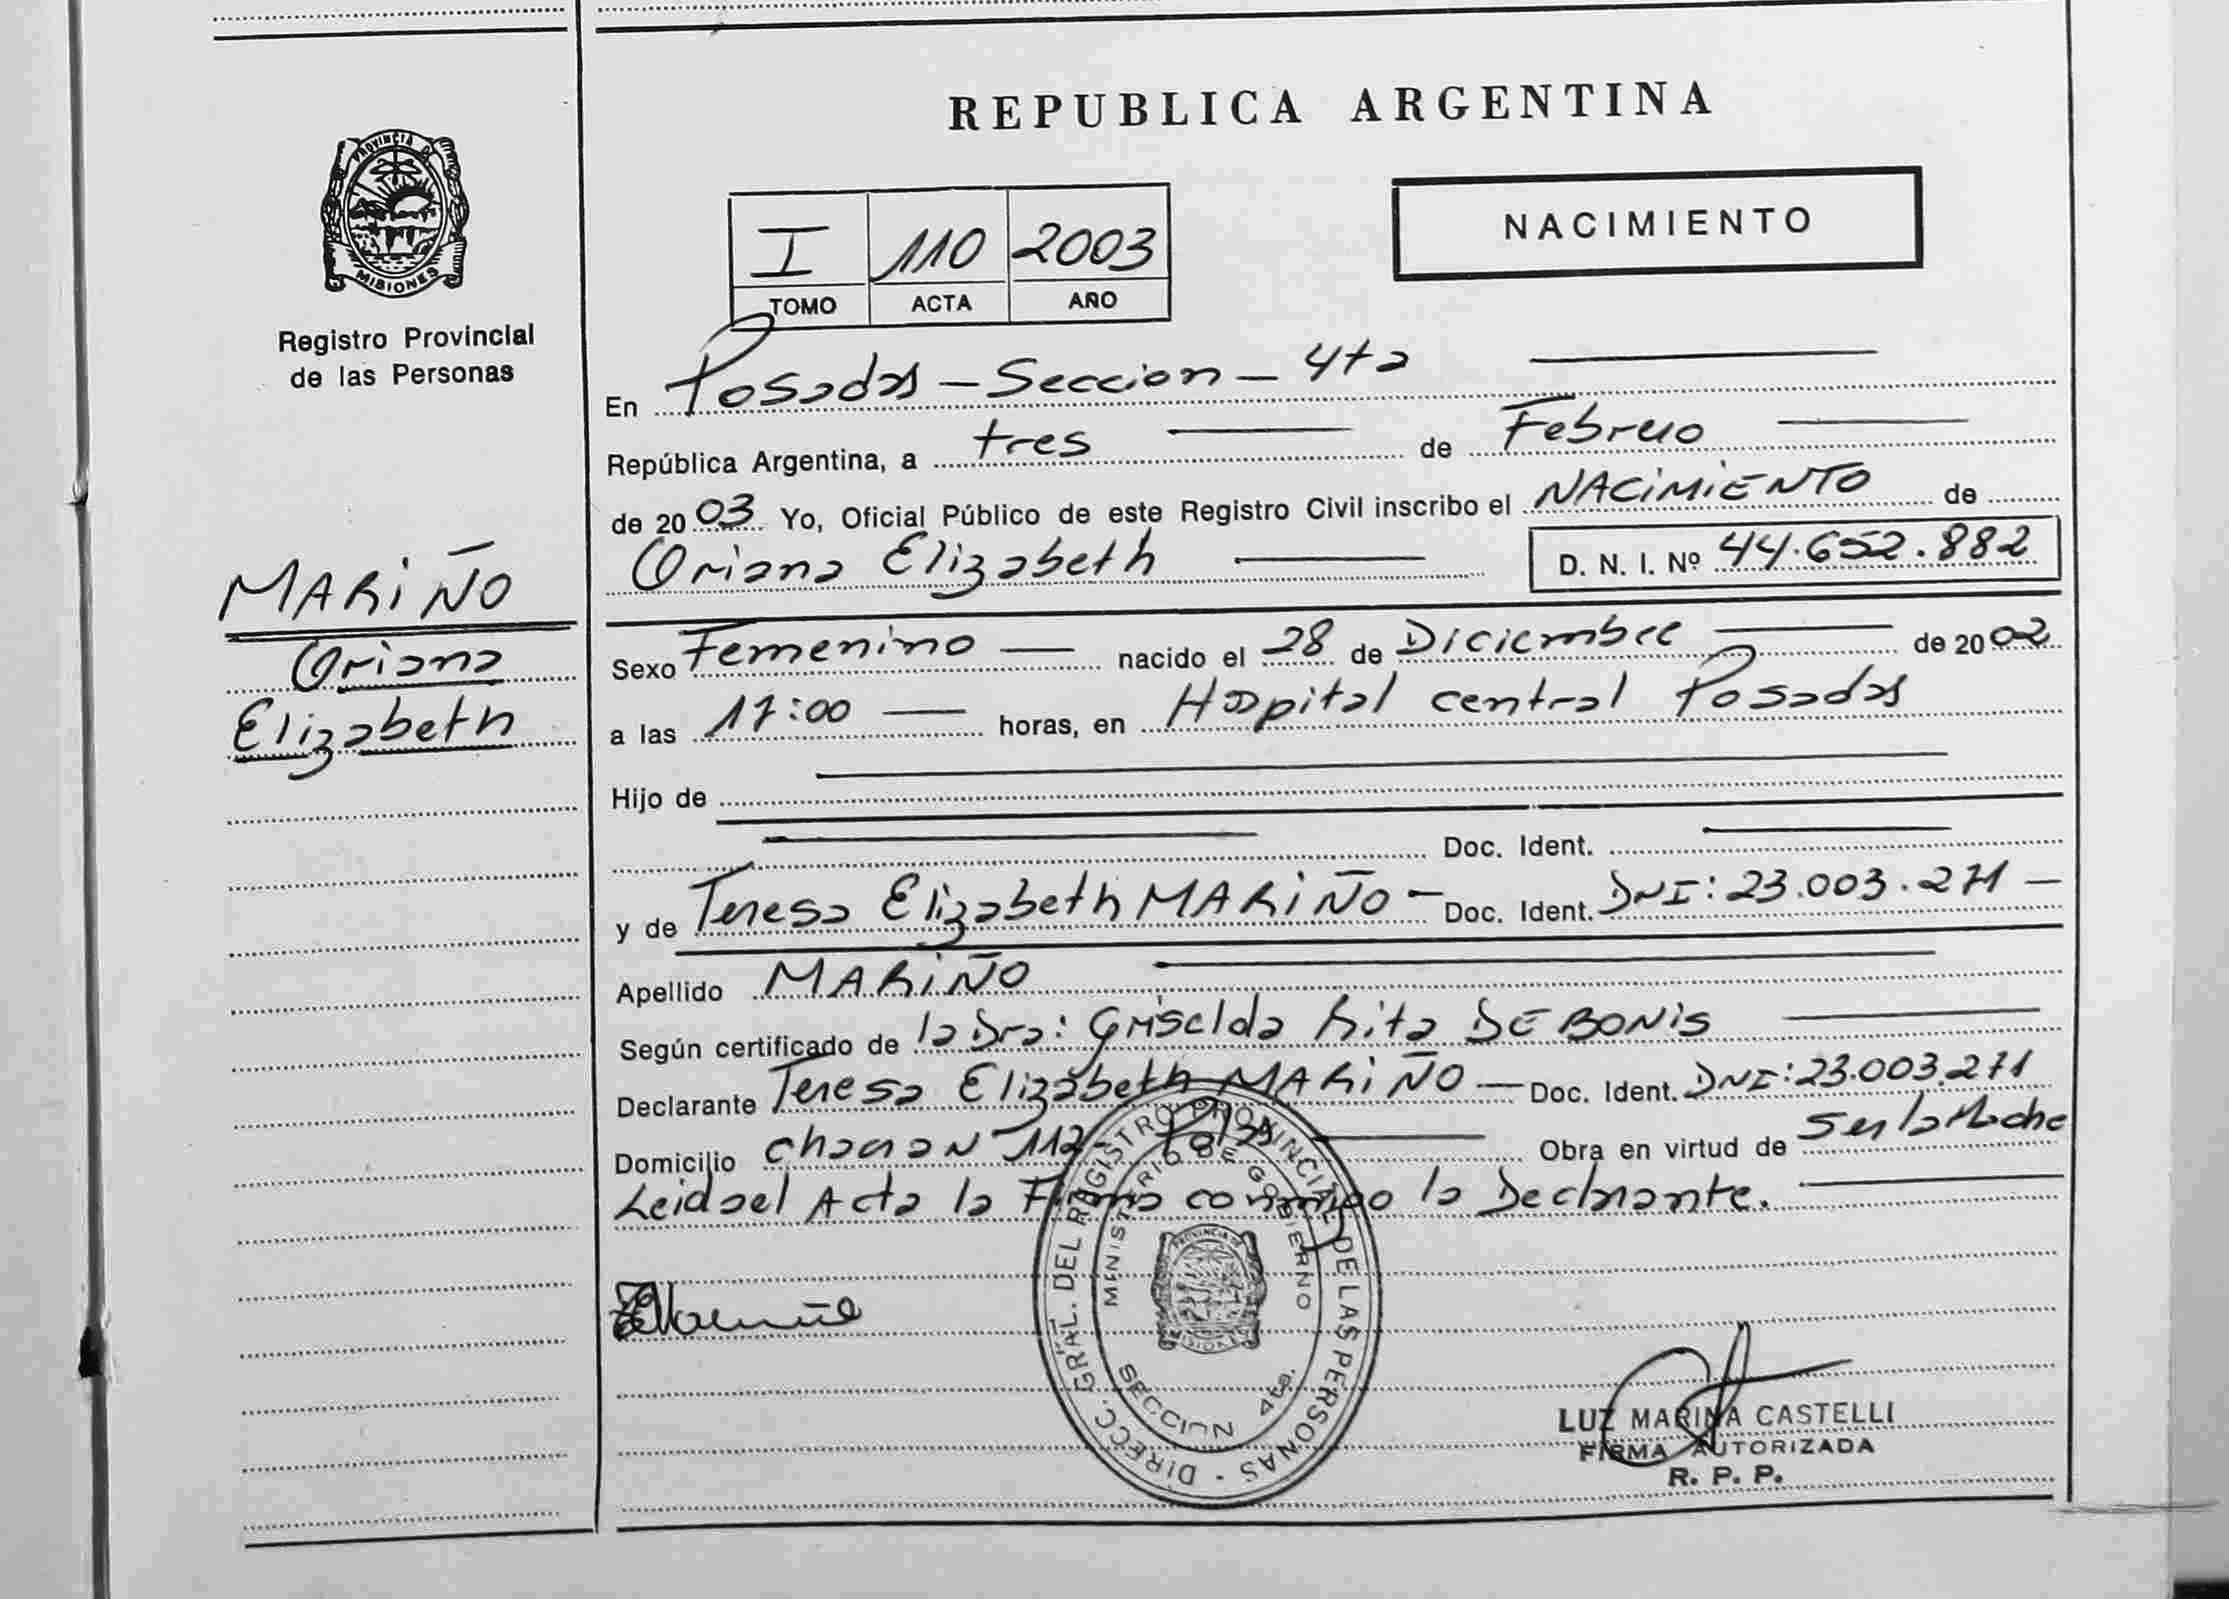 PROVINCIA DE
MISIONES
Registro Provincial
de las Personas
MARIÑO
Oriana
Elizabeth
REPUBLICA ARGENTINA
I 110 2003
TOMO ACTA AÑO
NACIMIENTO
En Posadas - Seccion - 4ta
República Argentina, a tres de Febrero
de 2003 Yo, Oficial Público de este Registro Civil inscribo el NACIMIENTO de
Oriana Elizabeth D. N. I. Nº 44.652.882
Sexo Femenino nacido el 28 de Diciembre de 2002
a las 17:00 horas, en Hospital central Posadas
Hijo de
Doc. Ident.
y de Teresa Elizabeth MARIÑO - Doc. Ident. DNI: 23.003.271 -
Apellido MARIÑO
Según certificado de la Dra: Griselda Rita DE BONIS
Declarante Teresa Elizabeth MARIÑO - Doc. Ident. DNI: 23.003.271
Domicilio chacra Nº 112 - Pdas Obra en virtud de Ser la Madre
Leida el Acta la Firma conmigo la Declarante.
DIRECC. GRAL. DEL REGISTRO PROVINCIAL DE LAS PERSONAS -
MINISTERIO DE GOBIERNO
SECCION 4ta.
LUZ MARINA CASTELLI
FIRMA AUTORIZADA
R. P. P.